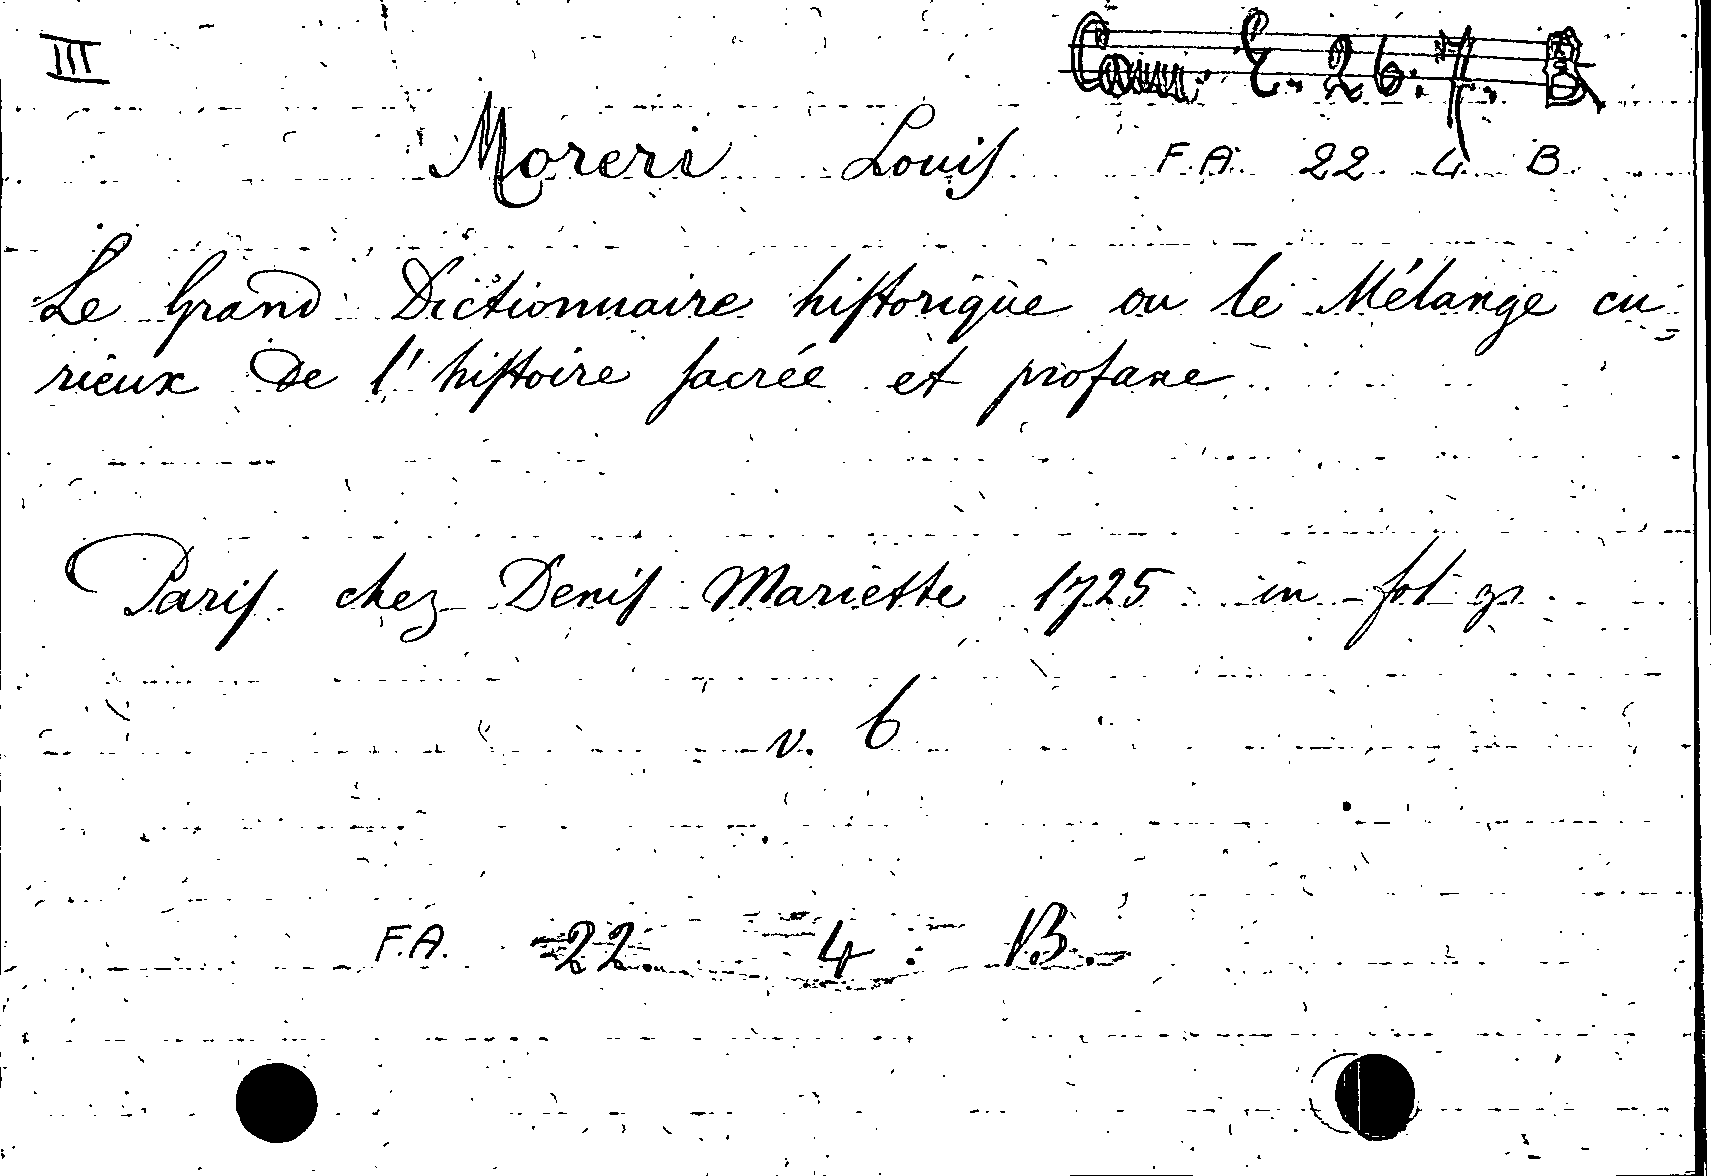 III
E. 26. 7. B
Moreri Louis F.A. 22 4 B
Le Grand Dictionnaire historique ou le Mélange cu-
rieux de l'histoire sacrée et profane
Paris chez Denis Mariette 1725 in fol gr
v. 6
F.A. 22. 4. B.